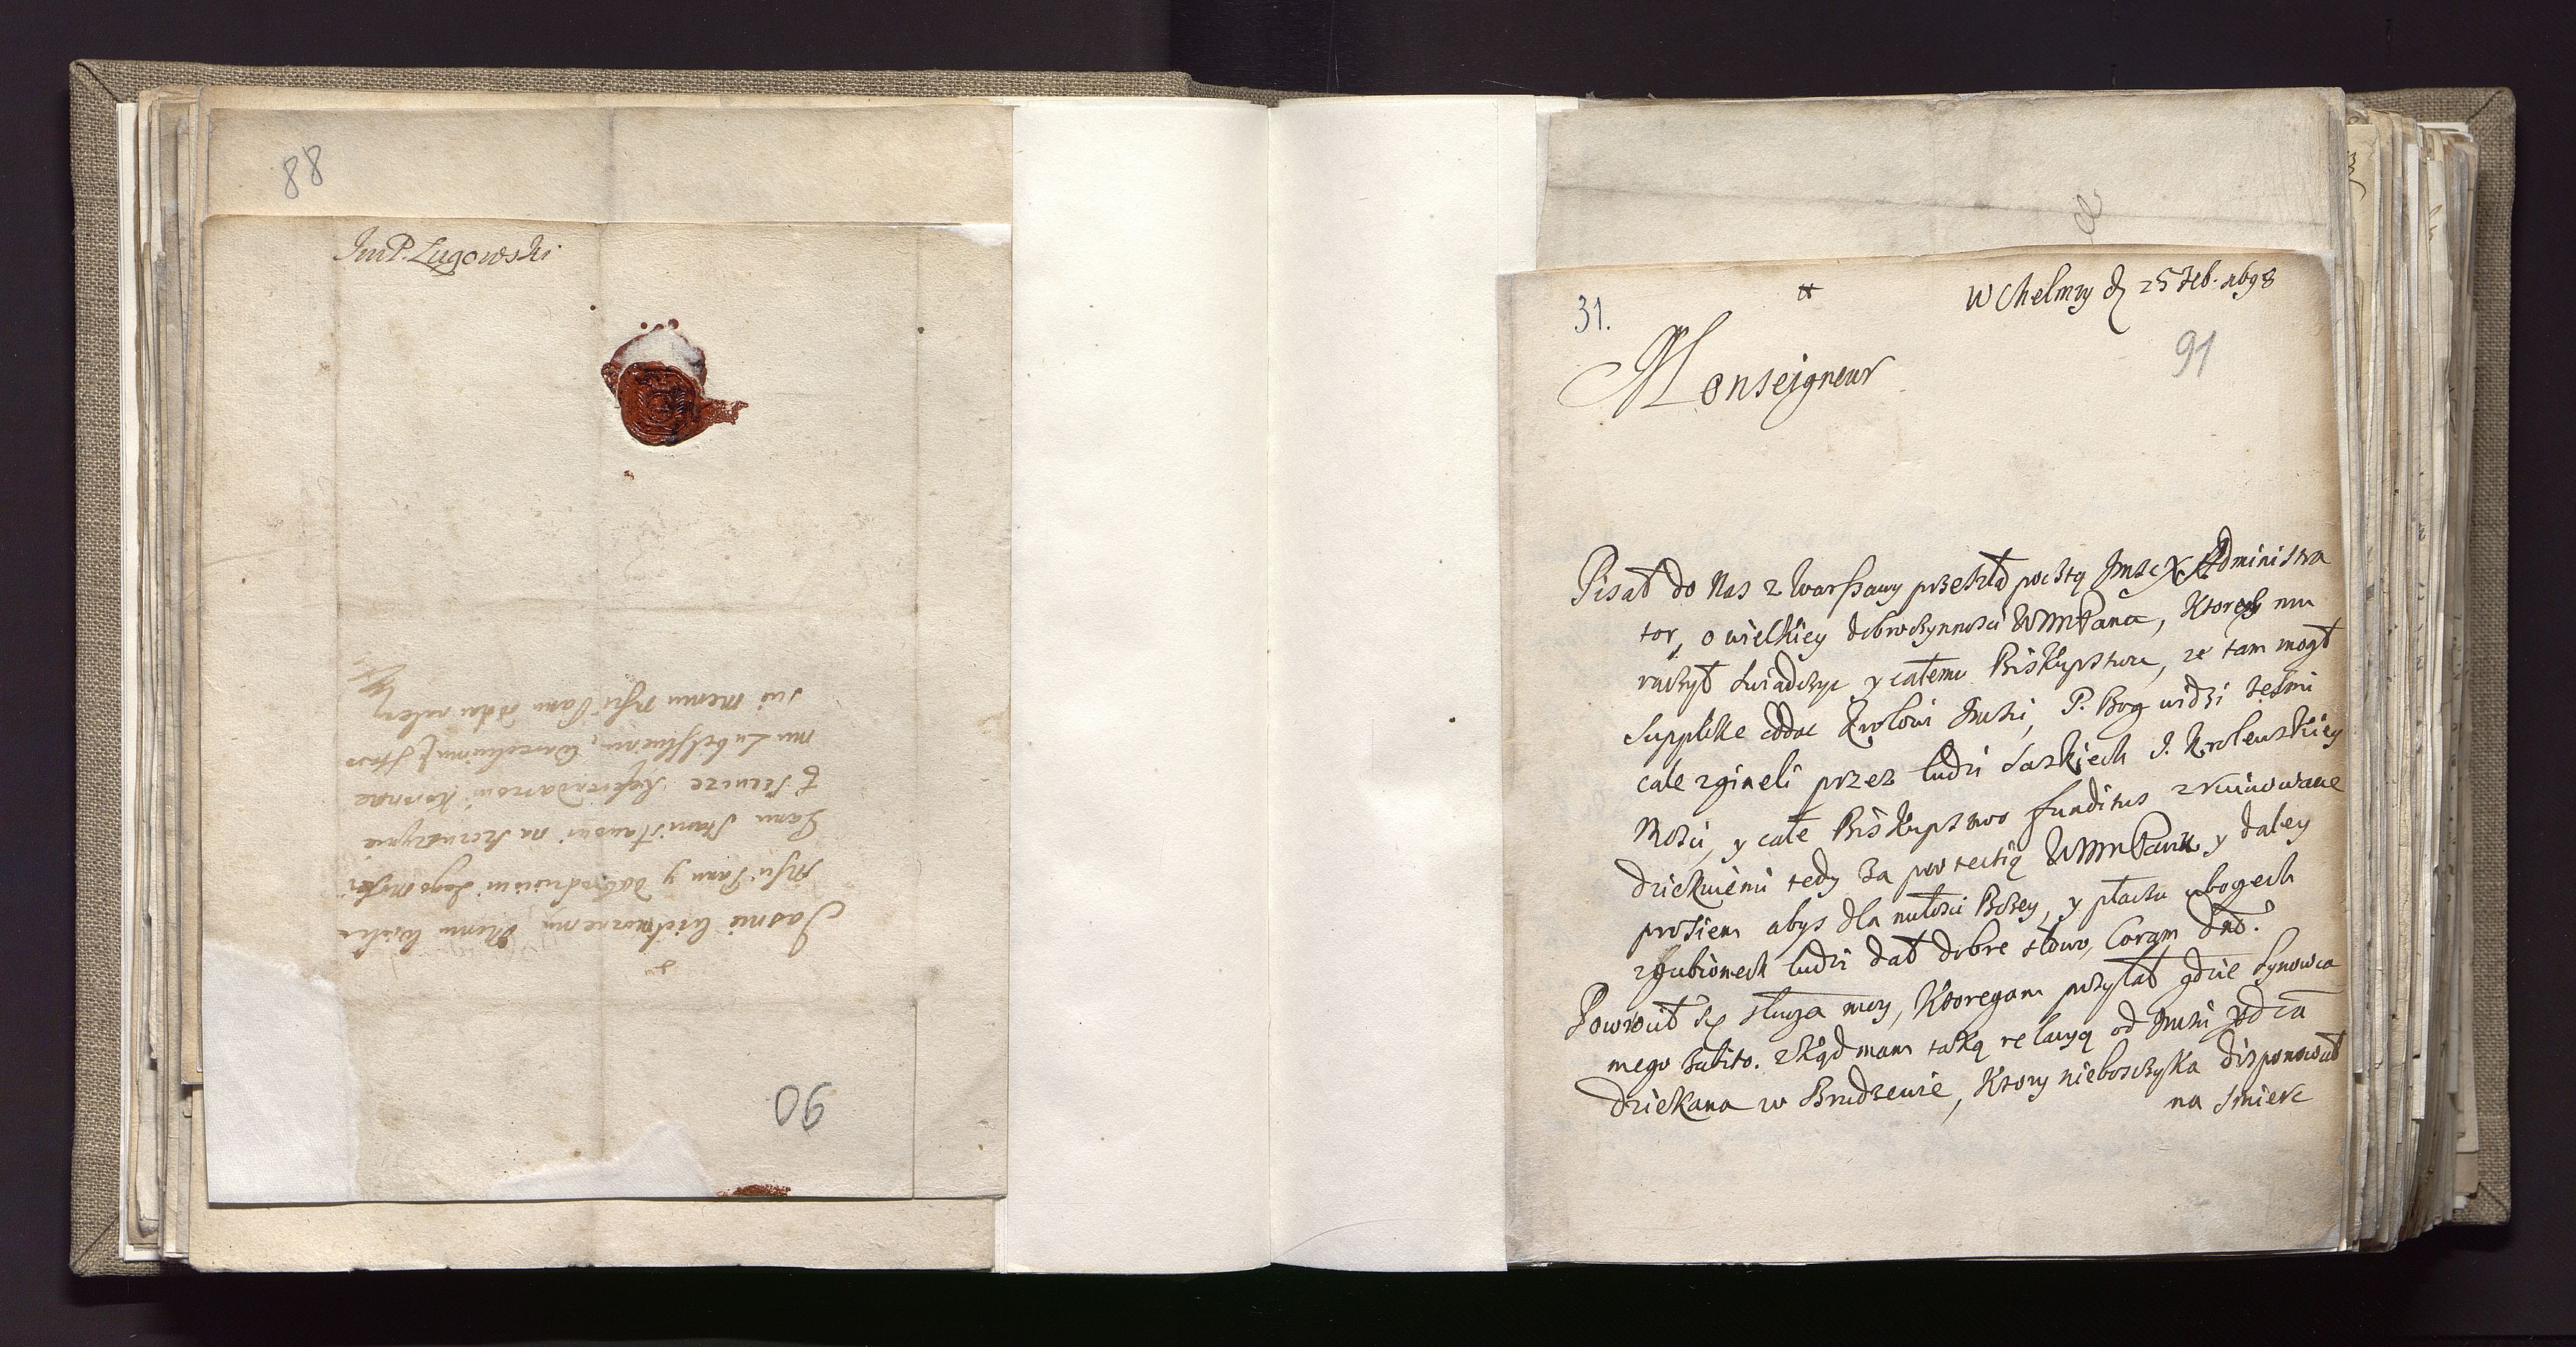 88
ImP. Lugowski
Jasnie Wielmoznemu Memu Wielce
Msci Panu y Dobrodzieiowi Jego Mosci
Panu Stanisławowi na Szczuczynie
Szczuce Referendarzowi Koronne
mu Lubelskiemu, Wąwolnic: Staro
scie Memu Msci Panu oddac należy
90
W Chelmzy d 25 Feb. 1698
31.
91
Monseigneur
Pisał do Nas z Warssawy przeszłą pocztą Jmsc X Administra
tor, o wielkiey dobroczynnosci WMMPana, ktorąś mu
raczył swiadczyc y całemu Biskupstwu, ze tam mogł
supplike oddac Krolowi Jmsci, P. Bog widzi zesmi
cale zgineli przez ludzi Saskiech J. Krolewskiey
Mosci, y całe Biskupstwo funditus zruinowane
Dziekuiemi tedy za protectią WMMPana y daley
prosiem abys dla miłosci Bozey, y płaczu ubogech
zgubionech ludzi dał dobre słowo, Coram Dno.
Powrocił się sługa moy, ktoregam posyłał gdzie synowca
mego zabito. zkąd mam taką relacyą od Jmsci Xdza
dziekana w Brudzewie, ktory nieboszczyka disponował
na smierc